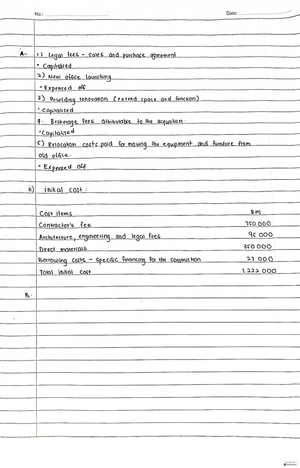 No.:
Date:
A- i) Legal fees - sales and purchase agreement
• Capitalised
2) New office launching
• Expensed off
3) Building renovation (extend space and function)
• Capitalised
4. Brokerage fees attributable to the aquation
• Capitalised
5) Relocation costs paid for moving the equipment and furniture from
old office.
• Expensed off
ii) initial cost :
Cost items RM
Contractor's fee 750 000
Architecture, engineering and legal fees 95 000
Direct materials 350 000
Borrowing costs - specific financing for the construction 27 000
Total initial cost 1 222 000
B.